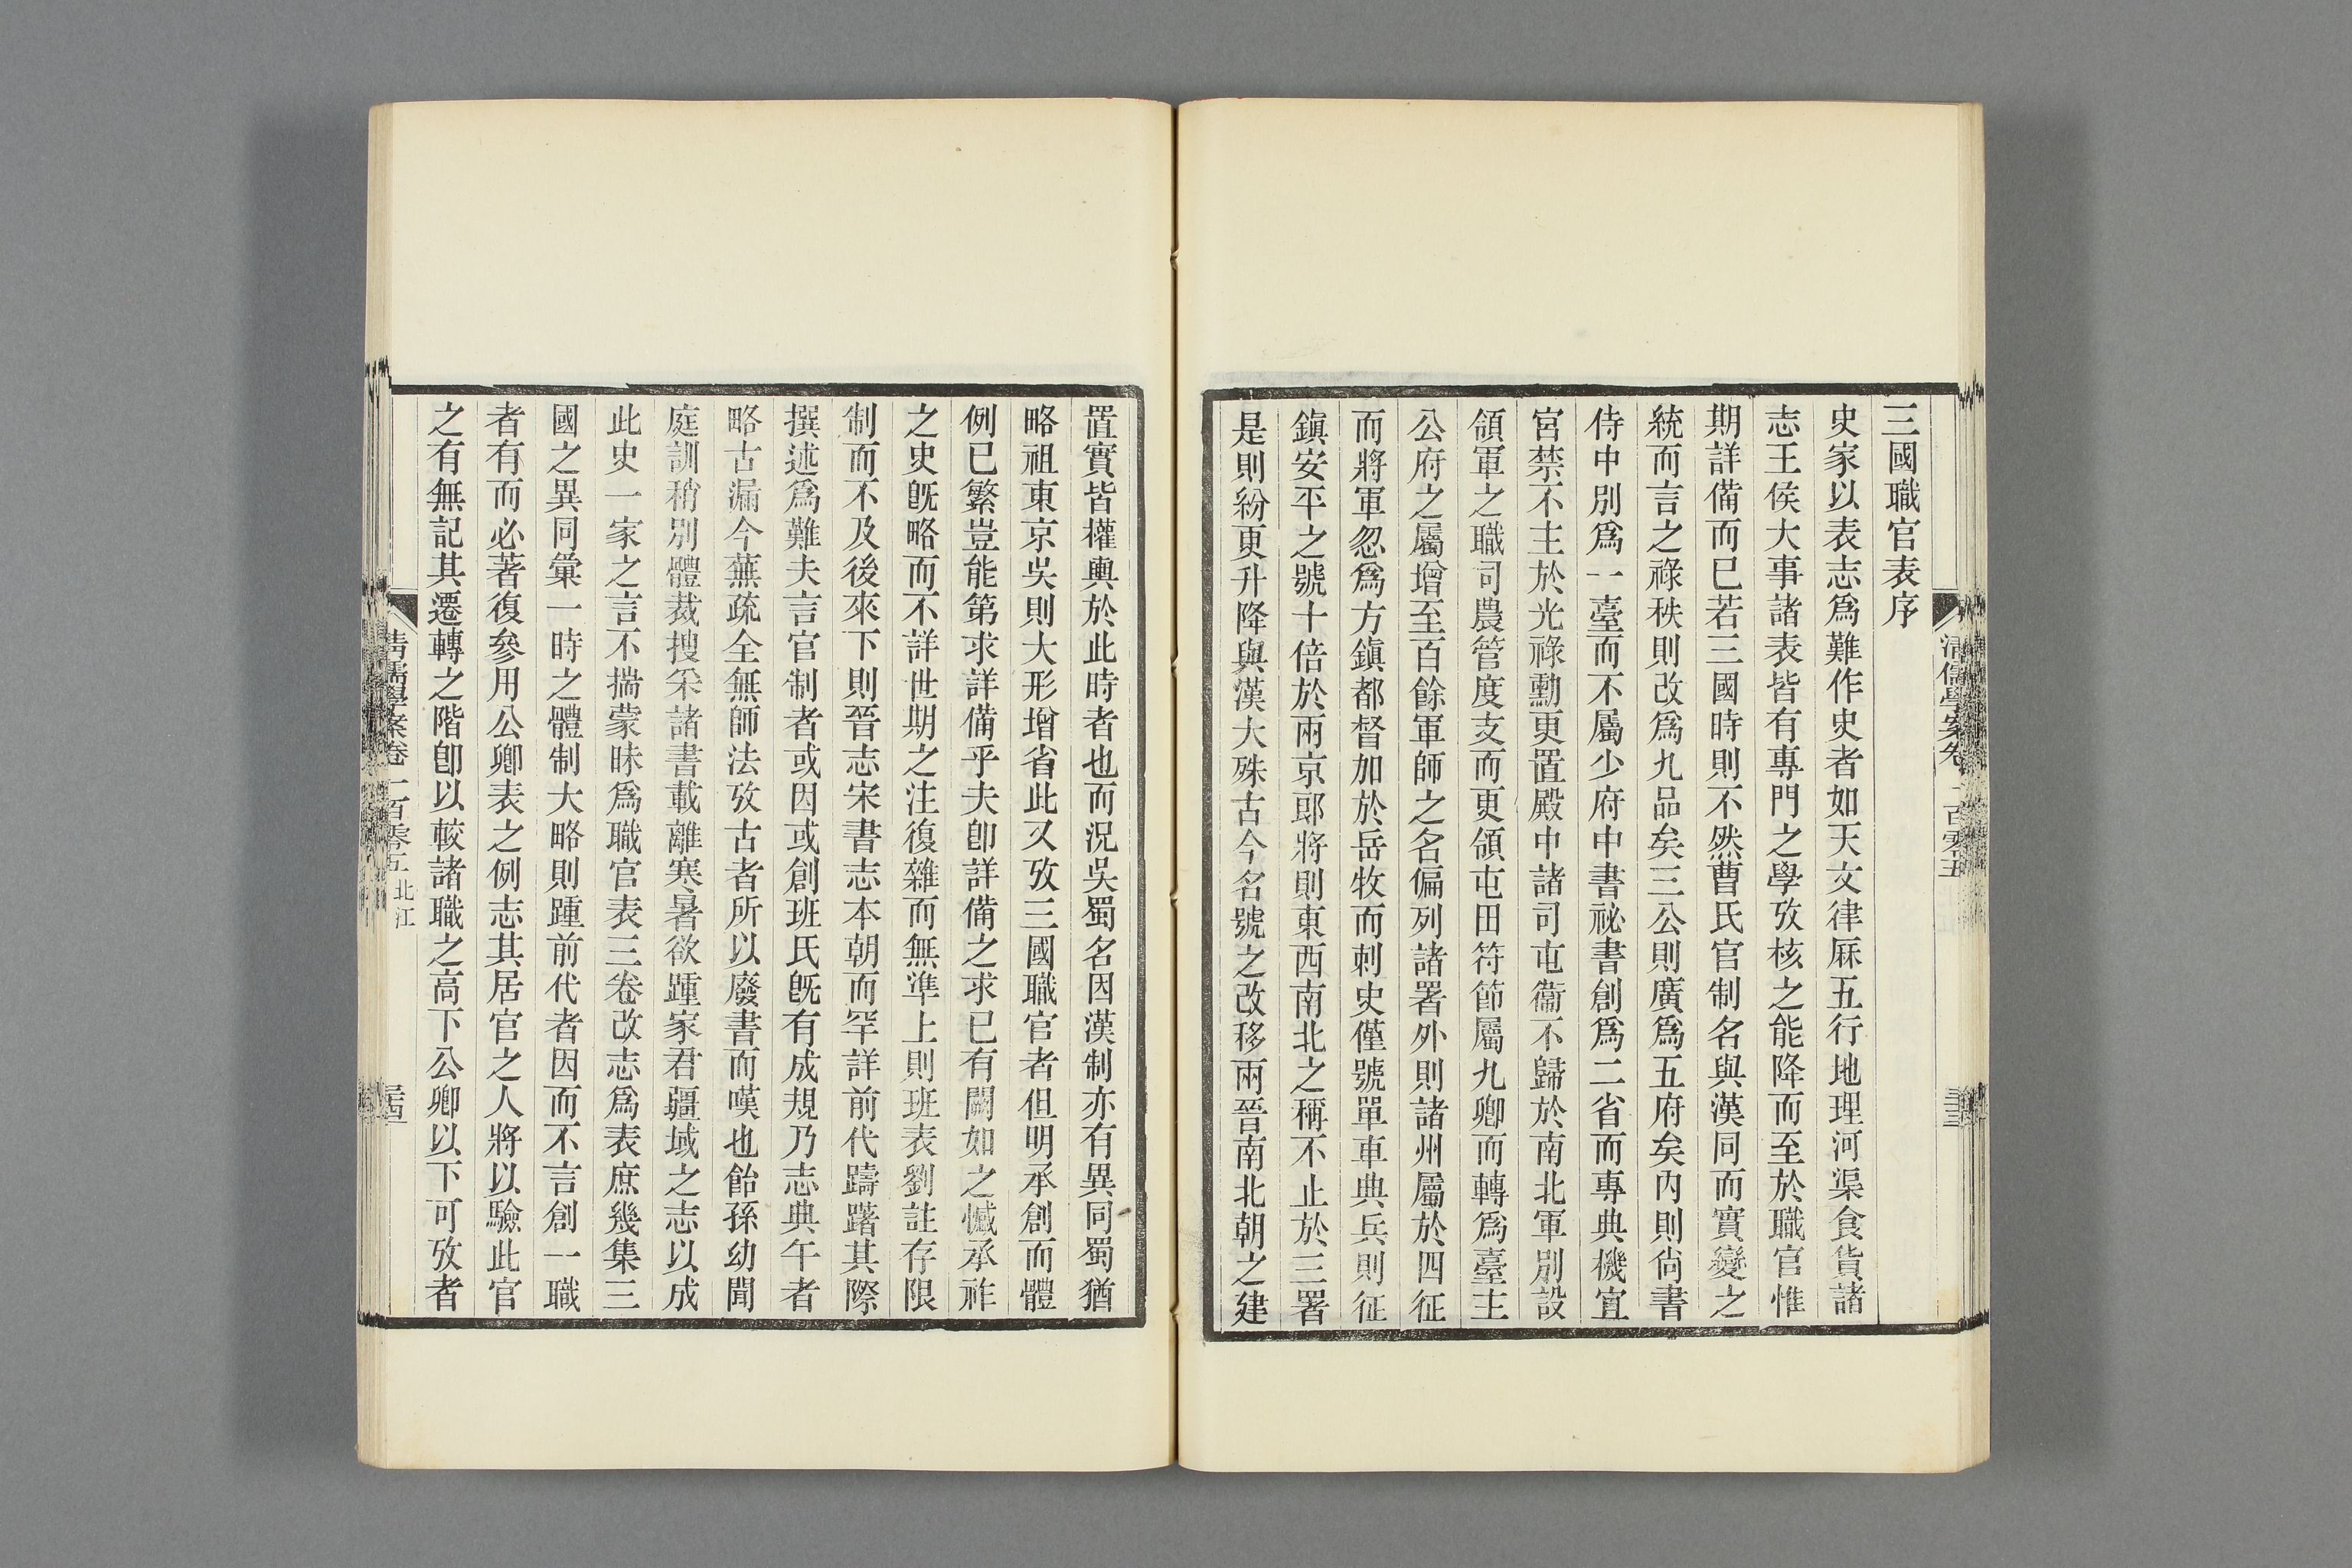 三國職官表序
史家以表志爲難作史者如天文律厤五行地理河渠食貨諸
志王侯大事諸表皆有專門之學攷核之能降而至於職官惟
期詳備而已若三國時則不然曹氏官制名與漢同而實變之
統而言之祿秩則改爲九品矣三公則廣爲五府矣內則尙書
侍中別爲一臺而不屬少府中書祕書創爲二省而專典機宜
宮禁不主於光祿勳更置殿中諸司屯衞不歸於南北軍別設
領軍之職司農管度支而更領屯田符節屬九卿而轉爲臺主
公府之屬增至百餘軍師之名偏列諸署外則諸州屬於四征
而將軍忽爲方鎭都督加於岳牧而刺史僅號單車典兵則征
鎭安平之號十倍於兩京郞將則東西南北之稱不止於三署
是則紛更升降與漢大殊古今名號之改移兩晉南北朝之建
置實皆權輿於此時者也而況吳蜀名因漢制亦有異同蜀猶
略祖東京吳則大形增省此又攷三國職官者但明承創而體
例已繁豈能第求詳備乎夫卽詳備之求已有闕如之憾承祚
之史旣略而不詳世期之注復雜而無準上則班表劉註存限
制而不及後來下則晉志宋書志本朝而罕詳前代躊躇其際
撰述爲難夫言官制者或因或創班氏旣有成規乃志典午者
略古漏今蕪疏全無師法攷古者所以廢書而嘆也飴孫幼聞
庭訓稍別體裁搜采諸書載離寒暑欲踵家君疆域之志以成
此史一家之言不揣蒙昧爲職官表三卷改志爲表庶幾集三
國之異同彙一時之體制大略則踵前代者因而不言創一職
者有而必著復參用公卿表之例志其居官之人將以驗此官
之有無記其遷轉之階卽以較諸職之高下公卿以下可攷者
清儒學案卷一百零五 北江
三十四